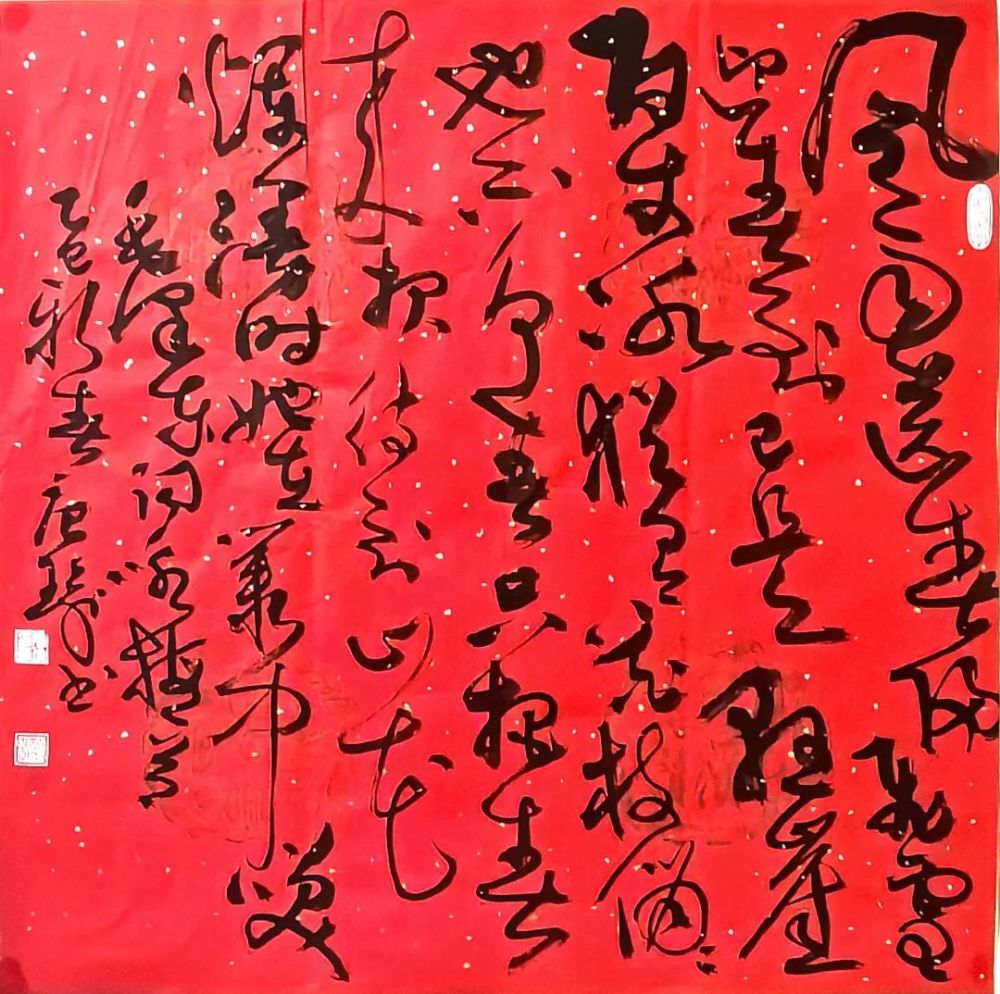 风雨送春归飞雪
迎春到已是悬崖
百丈冰犹有花枝俏
也不争春只把春
来报待到山花
烂漫时她在丛中笑
毛泽东词咏梅
乙巳新春唐书